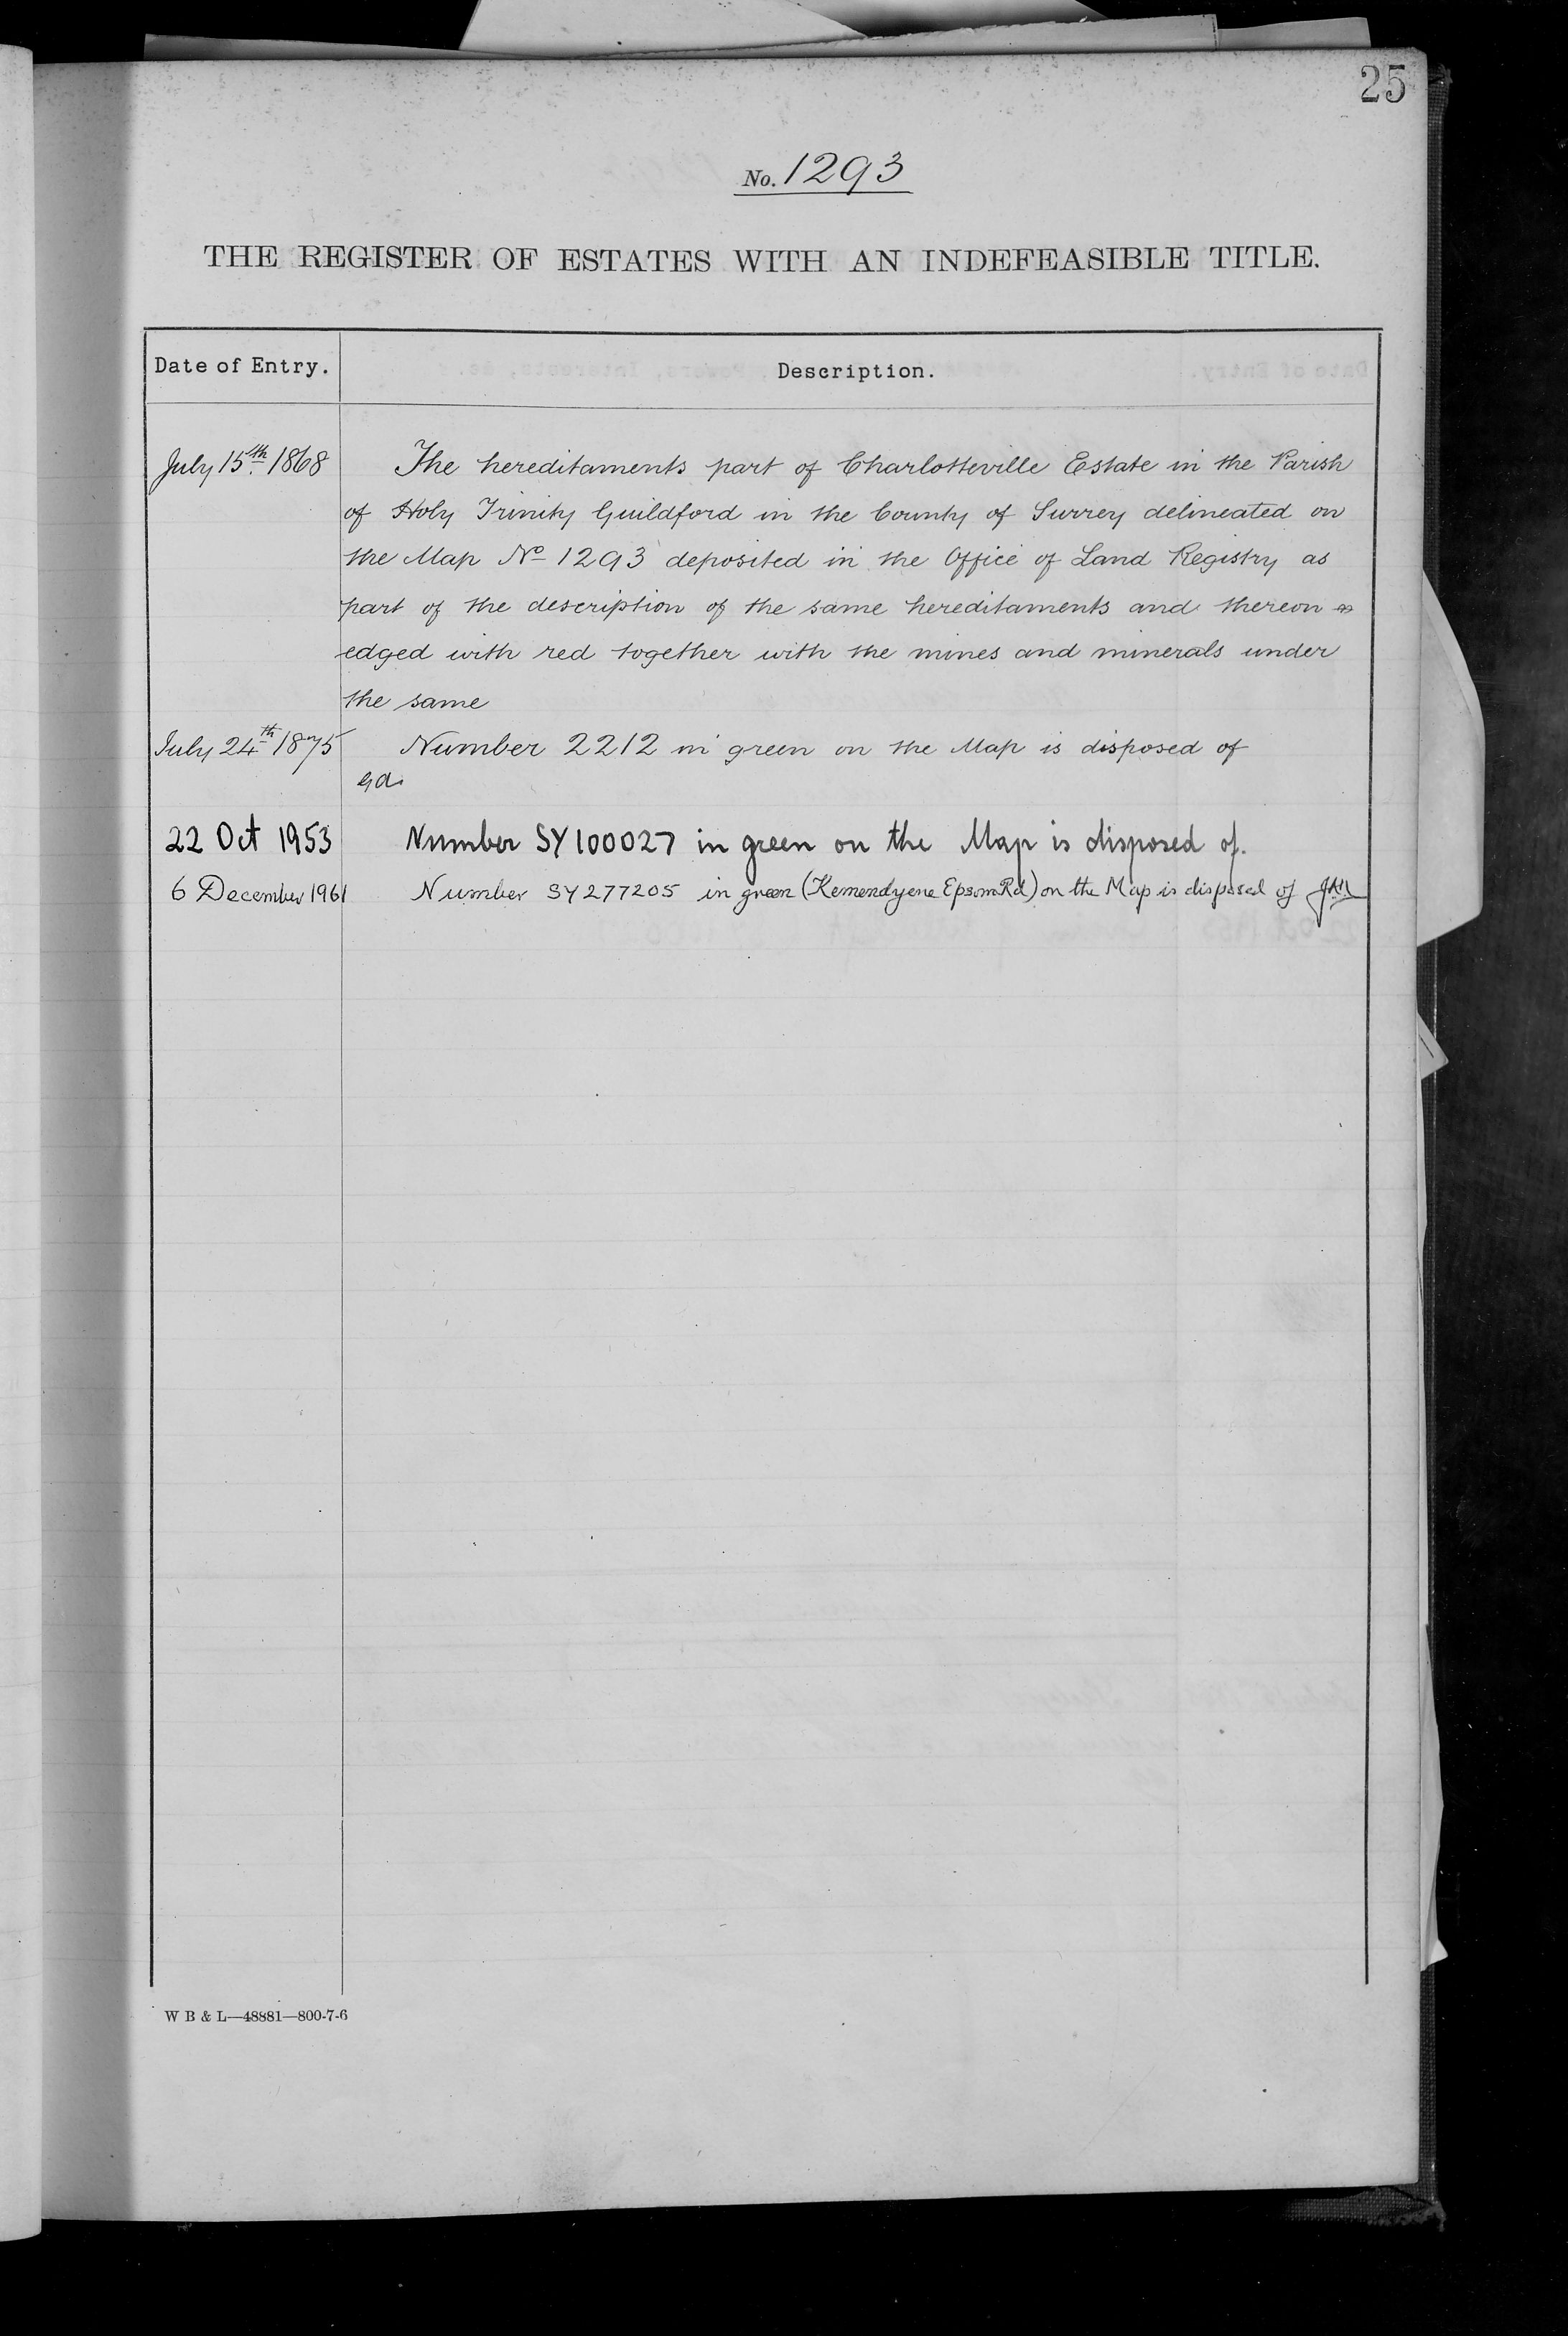 25
No. 1293
THE REGISTER OF ESTATES WITH AN INDEFEASIBLE TITLE.
Date of Entry. Description.
July 15th 1868 The hereditaments part of Charlotteville Estate in the Parish
of Holy Trinity Guildford in the County of Surrey delineated on
the Map No 1293 deposited in the Office of Land Registry as
part of the description of the same hereditaments and thereon
edged with red together with the mines and minerals under
the same
July 24th 1875 Number 2212 in green on the Map is disposed of
22 Oct 1953 Number SY100027 in green on the Map is disposed of.
6 December 1961 Number SY277205 in green (Kemendyene Epsom Rd) on the Map is disposed of
W B & L—48881—800-7-6